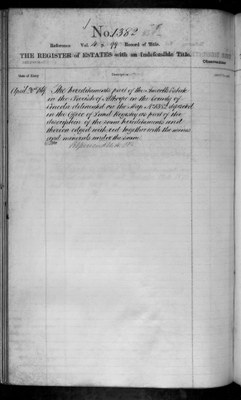 No. 1382
Reference Vol. 4 p. 77 Record of Title.
THE REGISTER of ESTATES with an Indefeasible Title.
Date of Entry
Description
Observations
April 20th 1869 The hereditaments part of the Estate
in the Parish of in the County of
Lincoln delineated on the Map No 1382 deposited
in the Office of Land Registry as part of the
description of the same hereditaments and
therein edged with red together with the mines
and minerals under the same